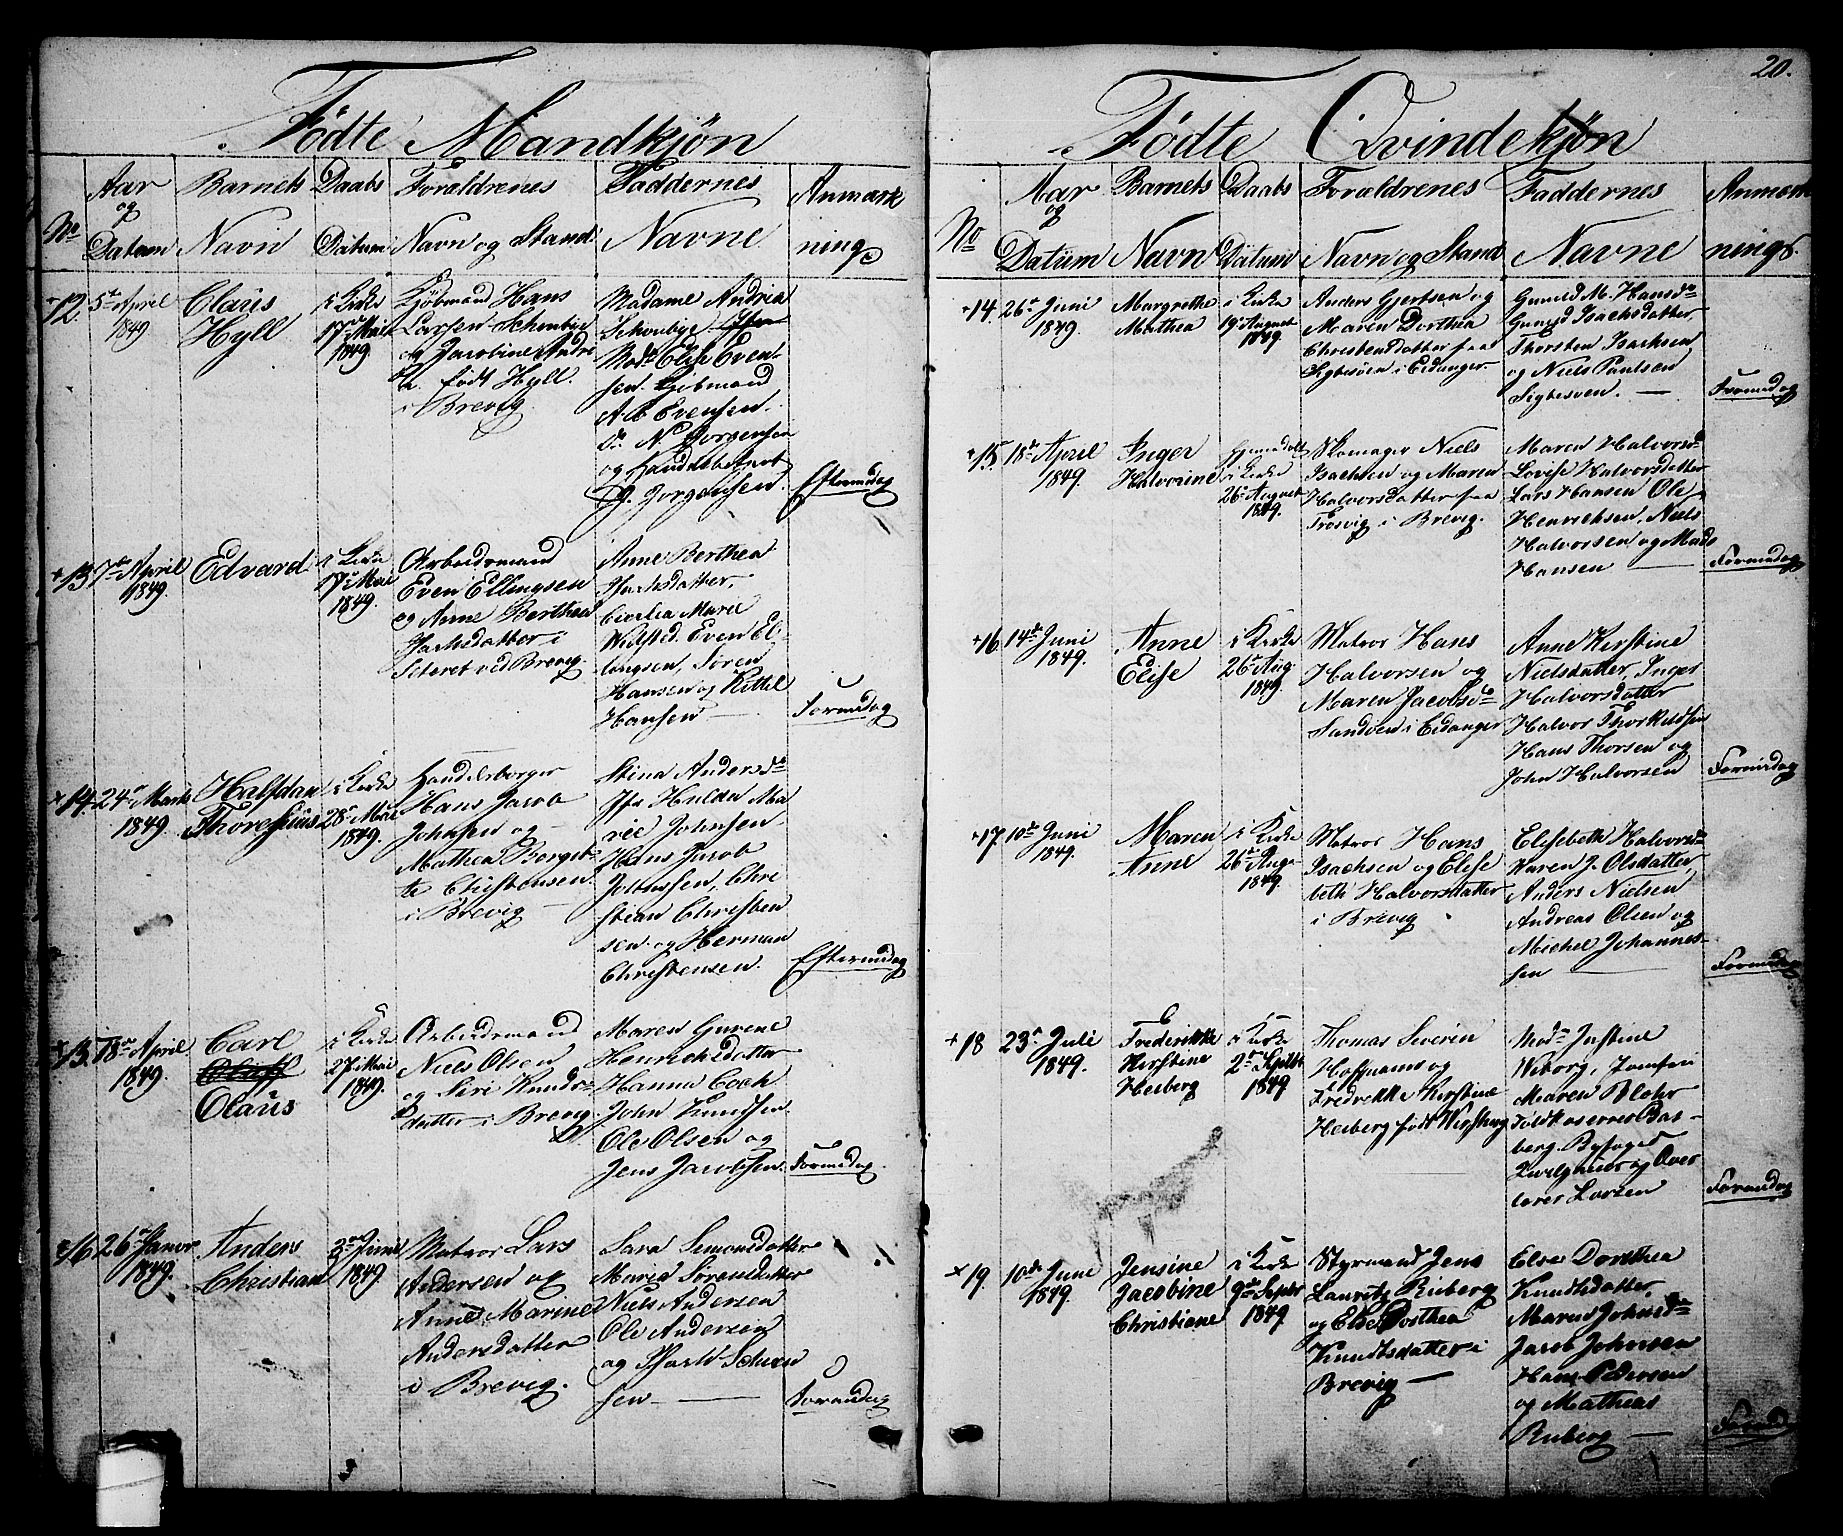 20.
Födte Mandkjön
No
Aar og Datum
Barnets Navn
Daabs Datum
Foraldrenes Navn og Stand
Faddernes Navne
Anmærkninge
12. 5te April 1849
Claus Hyll
i Kirke 17de Mai 1849
Kjöbmand Hans
Larsen Schouby
og Jacobine Andre
a. født Hyll.
i Brevig.
Madame Andrea
Schoubye
Mod. Elise Even-
sen. Kjöbmand
A B Evensen.
Do. N. Jorgensen
og Handelsbetjent
Jorgensen.
Eftermidag
+13 7de April 1849.
Edvard
i Kirke 17de Mai 1849.
Arbeidsmand
Even Ellingsen
og Anne Berthea
Isaksdatter i
Steret ved Brevig.
Anne Berthea
Isaksdatter,
Cicelia Marie
Wolfsted. Even El-
lingsen, Sören
Hansen og Kittel
Hansen —
Formidag
×14. 24de Marts 1849.
Halfdan Thoresius
i Kirke 28de Mai 1849.
Handelsborger
Hans Jacob
Johnsen og
Mathea Borget-
te Christensen.
i Brevig —
Stina Andersdr
Jfr Hulda Ma
rie Johnsen,
Hans Jacob
Johnssen, Chri
stian Christen
sen. og Herman
Christensen.
Eftermidag
15. 18de April 1849.
Carl
Olaus
i Kirke 27de Mai 1849.
Arbeidsmand
Niels Olsen
og Siri Knuds-
datter i Brevig.
Maren Gurene
Henrichsdatter
Hanna Coch
John Knudsen
Ole Olsen og
Jens Jacobsen.
Formidag.
16. 26de Januar 1849.
Anders Christian
3de Juni 1849.
Matros Lars
Andersen og
Anne Marine
Andersdatter
i Brevig.
Sara Simonsdatter
Maria Sörensdatter
Niels Andersen
Ole Andersen
og
sen —
Formidag
Födte Qvindekjön
No
Aar og Datum
Barnets Navn
Daabs Datum
Foraldrenes Navn og Stand
Faddernes Navne
Anmærknings.
+14. 26de Juni 1849.
Margrethe Mathea
i Kirke 19de August 1849.
Anders Gjertsen og
Maren Dorthea
Christensdatter paa
Sigtesöen i Eidanger.
Gunild M. Hansdr
Gunild Isachsdatter,
Thorsten Isachsen
og Niels Paulsen
Sigtesöen. —
Formidag
+15. 18de April 1849.
Inger Halvorine
Hjemmedöbt i Kirke 26de August 1849.
Skomager Niels
Isachsen og Maren
Halvorsdatter paa
Trosvig i Brevig.
Maren Halvorsdr
Lovise Halvorsdatter
Lars Hansen Ole
Henrichsen, Niels
Halvorsen og Mads
Hansen —
Formidag
+16. 14de Juni 1849.
Anne Elise
i Kirke 26de Aug. 1849.
Matros Hans
Halvorsen og
Maren Jacobsdr
Sandöen i Eidanger
Anne Kirstine
Nielsdatter, Inger
Halvorsdatter
Halvor Thorkildsen
Hans Thorsen og
John Halvorsen
Formidag
+17. 10de Juni 1849.
Maren Anne
i Kirke 26de Aug. 1849.
Matros Hans
Isachsen og Elise
beth Halvorsdatter
i Brevig
Elisebeth Halvorsdr
Karen J. Olsdatter,
Anders Nielsen
Andreas Olsen og
Michel Johannes-
sen —
Formidag
+18 23de Juli 1849.
Frederikke Kirstine Heiberg
i Kirke 2de Septbr 1849
Thomas Severin
Hoffmans og
Fredrekke Kirstine
Heiberg født Wirsting
Mod. Justine
Wiborg, Jomfru
Maren Blehr
Toldkaserer Bas-
berg. Byfoged
og Over
lærer Larsen
Formidag
×19. 10de Juni 1849.
Jensine Jacobine Christiane
i Kirke 9de Septbr 1849
Styrmand Jens
Lauritz Ruberg
og Else Dorthea
Knudtsdatter i
Brevig —
Else Dorthea
Knudtsdatter,
Maren Johnsdr
Jacob Johnsen
Hans Pedersen
og Mathias
Ruberg —
Formid